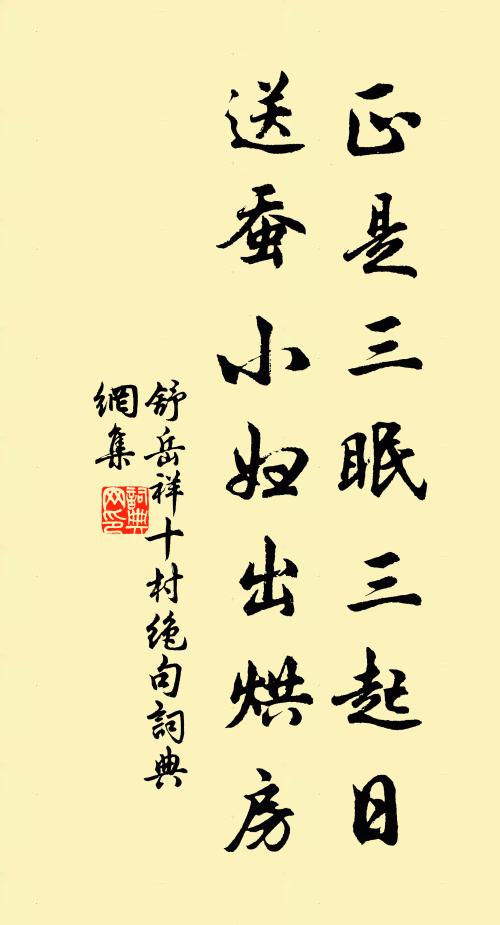 正是三眠三起日
送蚕小妇出烘房
舒岳祥十村绝句詞典
網集
詞典
网印